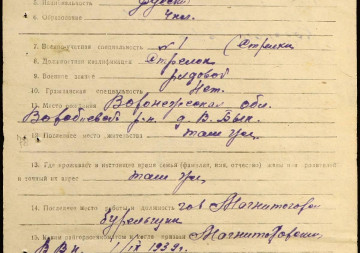 5. Национальность русский
6. Образование 4 кл.
7. Военно-учетная специальность № 1 (Стрелки
8. Должностная квалификация Стрелок
9. Военное звание рядовой
10. Гражданская специальность Нет.
11. Место рождения Воронежская обл.
Воробьевский р-н д. В. Бык.
12. Последнее место жительства там же
13. Где проживает в настоящее время семья (фамилия, имя, отчество) жены или родителей
и точный их адрес там же
14. Последнее место работы и должность гор Магнитогорск
бурельщик
15. Каким райгорвоенкоматом и когда призван Магнитогорским
Р.В.К. 1/IX 1939 г.